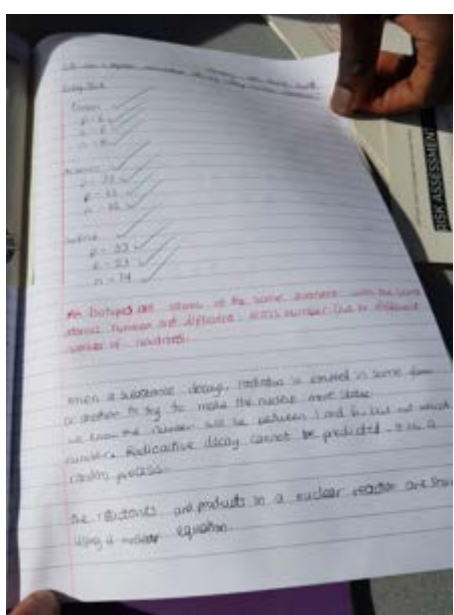 Carbon
p = 6
e = 6
n = 6
Arsenic
p = 33
e = 33
n = 42
Iodine
p = 53
e = 53
n = 74
An Isotopes are atoms of the same element with the same
atomic number and different mass number due to different
number of neutrons.
When a substance decays, radiation is emitted in some form
or another to try to make the nucleus more stable.
we know the number will be between 1 and 6, but not which
number. Radioactive decay cannot be predicted - it is a
random process.
the reactants and products in a nuclear reaction are
using a nuclear equation.
RISK ASSESSMENT